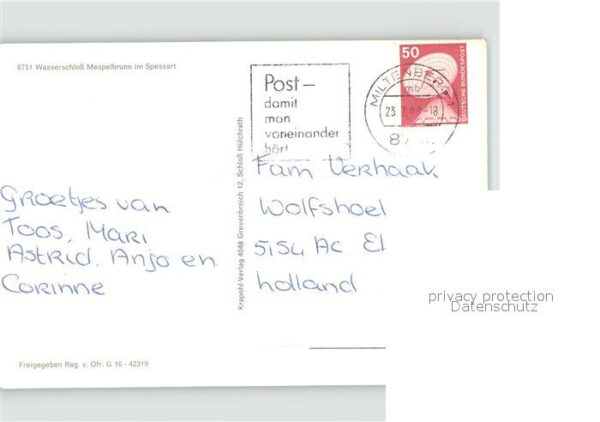 8751 Wasserschloß Mespelbrunn im Spessart
Post–
damit
man
voneinander
hört
50
DEUTSCHE BUNDESPOST
MILTENBERG 1
mb
23.
-18
Groetjes van
Toos, Mari
Astrid, Anjo en
Corinne
Krapohl-Verlag 4048 Grevenbroich 12, Schloß Hülchrath
Fam Verhaak
Wolfshoel
5154 AC El
holland
privacy protection
Datenschutz
Freigegeben Reg. v. Ofr. G 16 - 42319